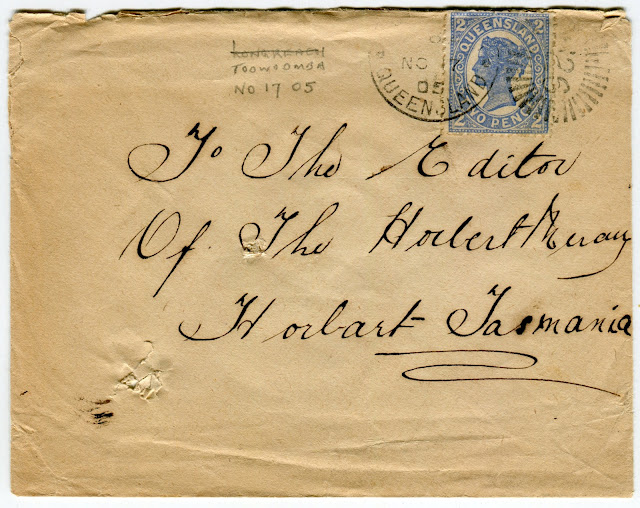 LONGREACH
TOOWOOMBA
NO 17 05
NO
05
QUEENSLAND
2 QUEENSLAND 2
2 TWO PENCE 2
To The Editor
Of The Horbert Mercury
Horbart Tasmania